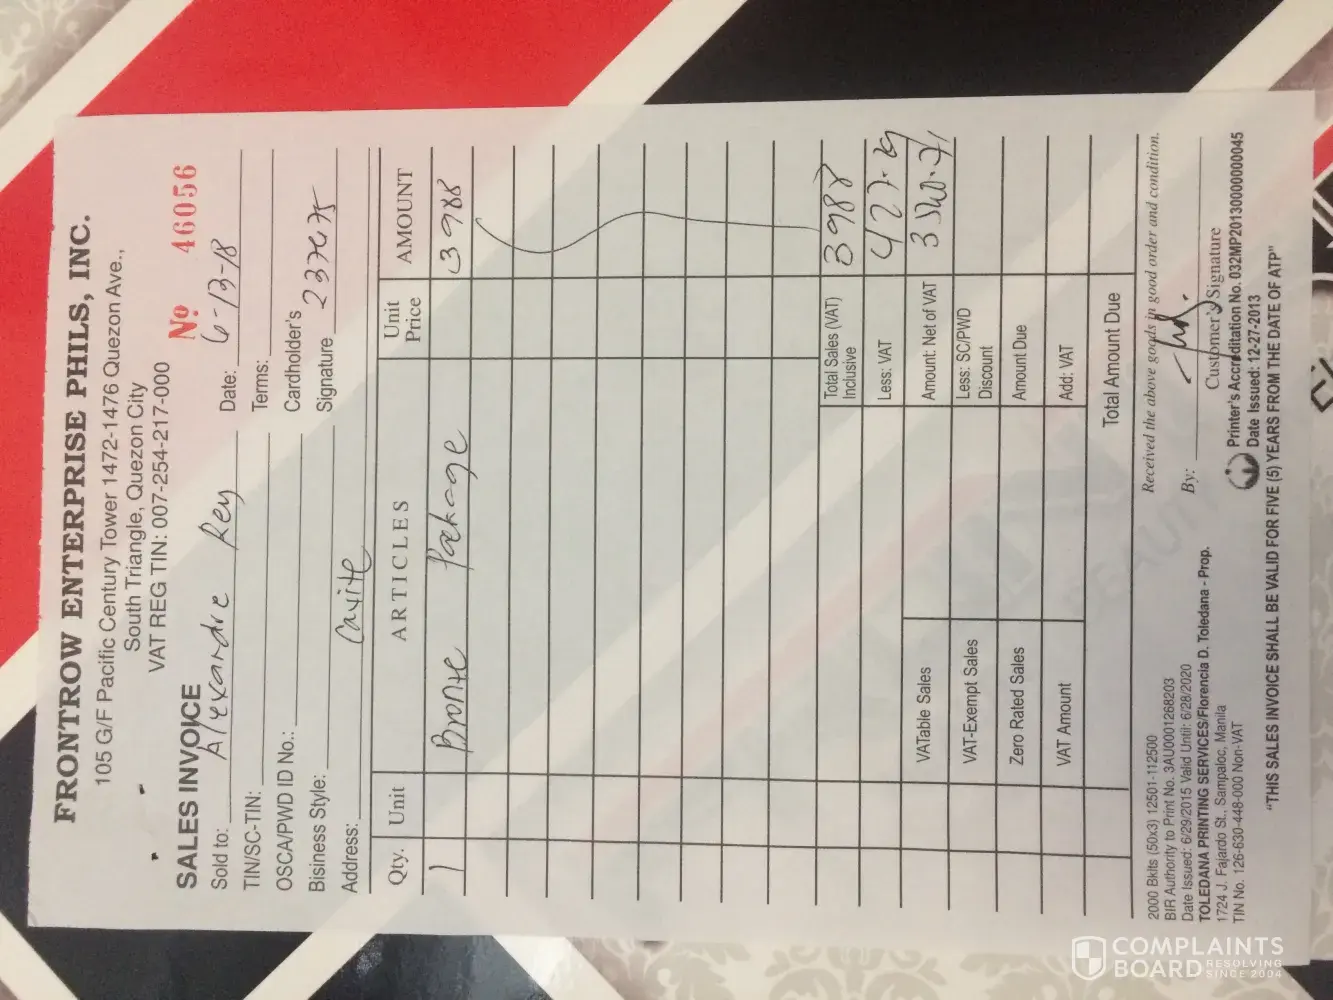 FRONTROW ENTERPRISE PHILS, INC.
105 G/F Pacific Century Tower 1472-1476 Quezon Ave.,
South Triangle, Quezon City
VAT REG TIN: 007-254-217-000
SALES INVOICE
Nº 46056
Sold to: Alexandre Rey Date: 6-13-18
TIN/SC-TIN: Terms:
OSCA/PWD ID No.: Cardholder's
Bisiness Style: Signature
Address: Cavite
Qty. Unit ARTICLES Unit Price AMOUNT
1 Bronze Package 3988
Total Sales (VAT) Inclusive 3988
Less: VAT 427.29
VATable Sales Amount: Net of VAT
VAT-Exempt Sales Less: SC/PWD Discount
Zero Rated Sales Amount Due
VAT Amount Add: VAT
Total Amount Due
2000 Bkits (50x3) 12501-112500
BIR Authority to Print No. 3AU0001268203
Date Issued: 6/29/2015 Valid Until: 6/28/2020
TOLEDANA PRINTING SERVICES/Florencia D. Toledana - Prop.
1724 J. Fajardo St., Sampaloc, Manila
TIN No. 126-630-448-000 Non-VAT
Received the above goods in good order and condition.
By:
Customer's Signature
Printer's Accreditation No. 032MP20130000000045
Date Issued: 12-27-2013
"THIS SALES INVOICE SHALL BE VALID FOR FIVE (5) YEARS FROM THE DATE OF ATP"
COMPLAINTS
BOARD RESOLVING
SINCE 2004